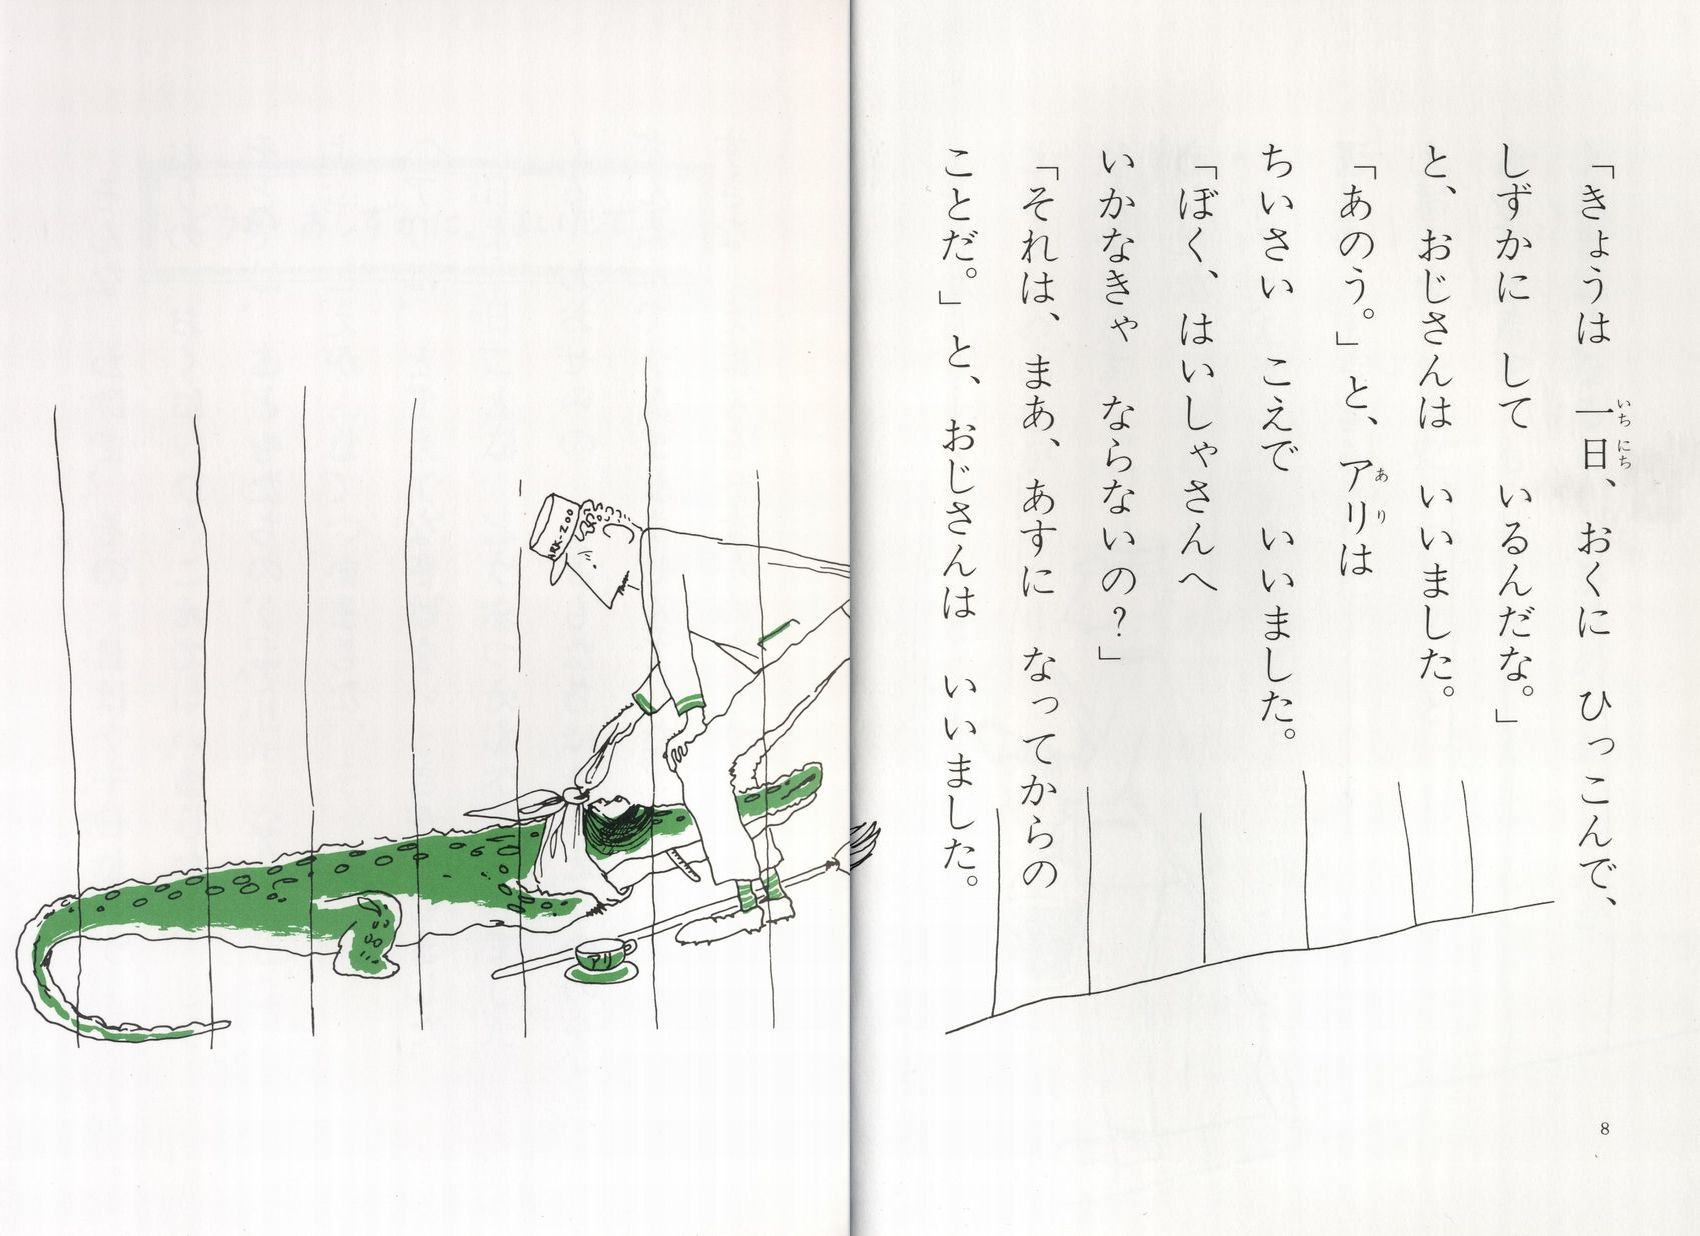 「きょうは　一日、おくに　ひっこんで、
しずかに　して　いるんだな。」
と、おじさんは　いいました。
「あのう。」と、アリは
ちいさい　こえで　いいました。
「ぼく、はいしゃさんへ
いかなきゃ　ならないの？」
「それは、まあ、あすに　なってからの
ことだ。」と、おじさんは　いいました。
いち にち
あり
8
ARK-ZOO
アリ